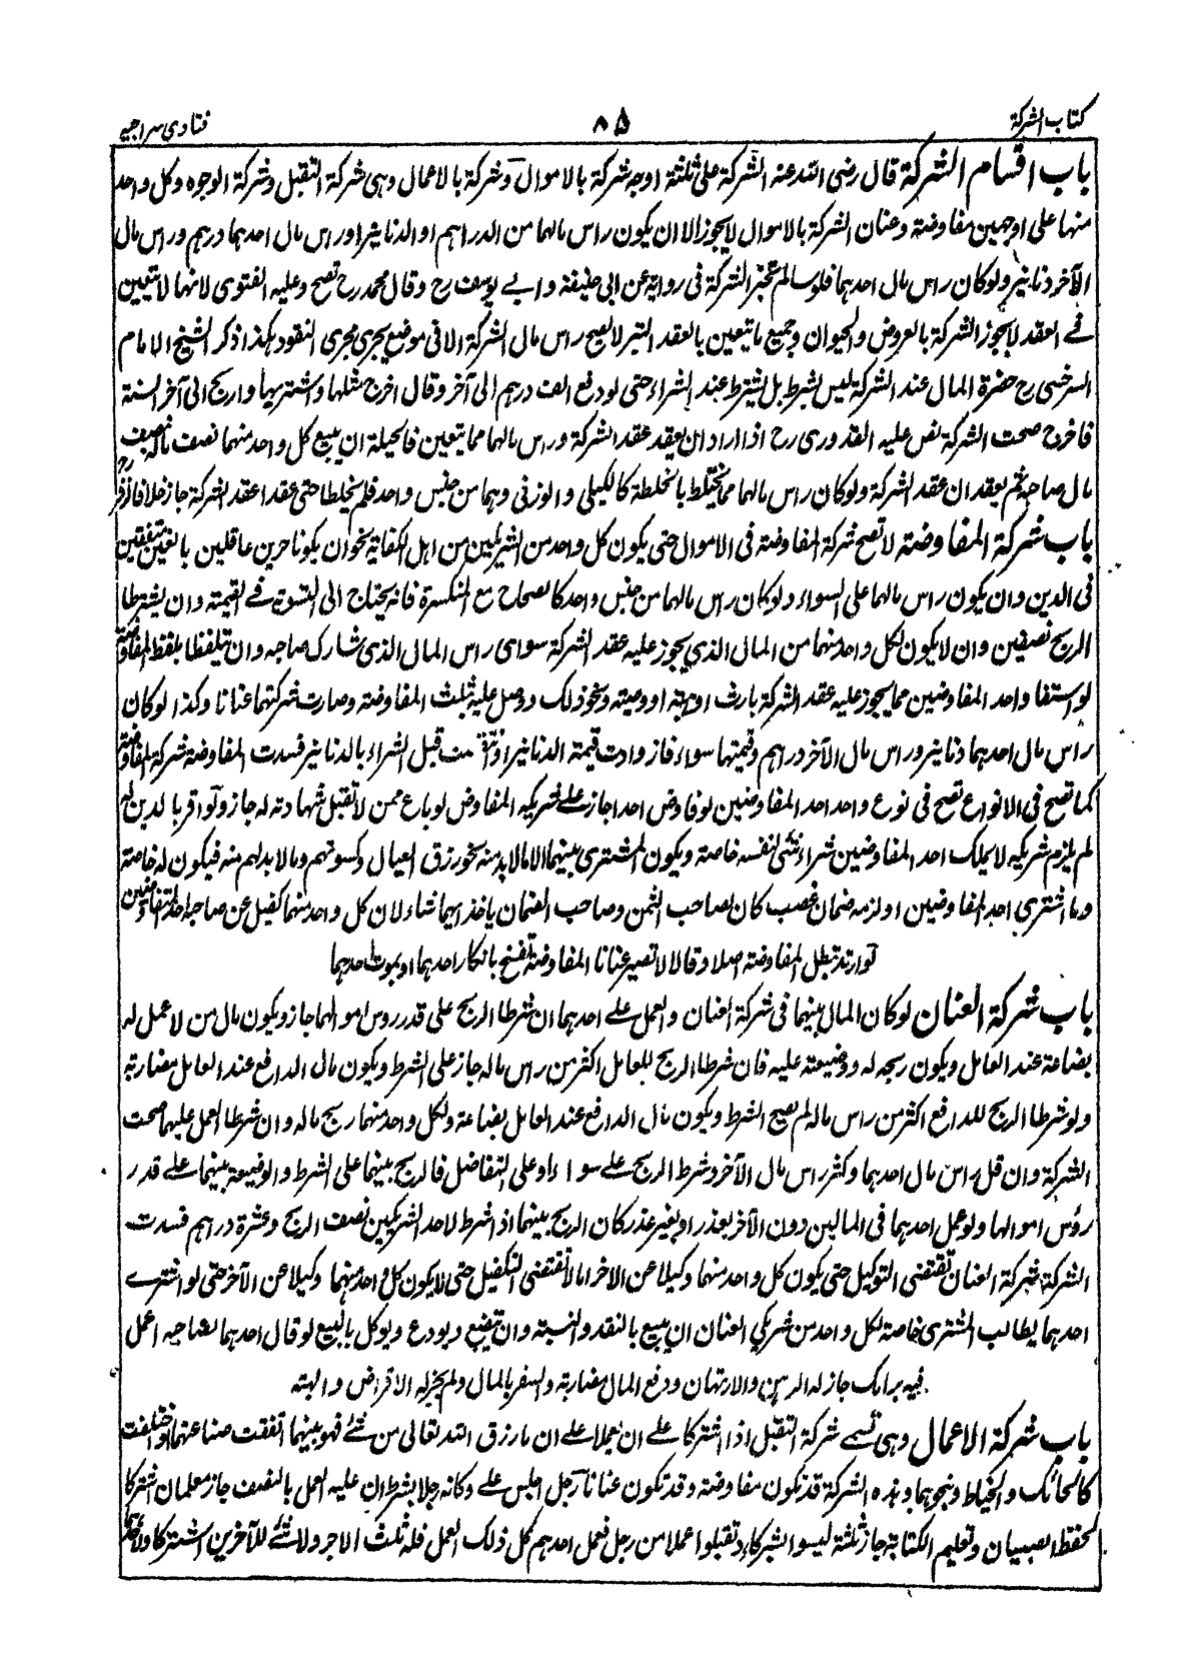 كتاب الشركة
٨٥
فتاوى سراجيه
باب اقسام الشركة قال رضى الله عنه الشركة على ثلثة اوجه شركة بالاموال وشركة بالاعمال وهى شركة التقبل وشركة الوجوه وكل واحد
منها على وجهين مفاوضة وعنان الشركة بالاموال لايجوز الا ان يكون راس مالهما من الدراهم او الدنانير او راس مال احدهما درهم وراس مال
الآخر دنانير ولو كان راس مال احدهما فلوسا لم تجز الشركة فى رواية عن ابى حنيفة وابے يوسف رح وقال محمد رح تصح وعليه الفتوى لانها لا تتعين
فے العقد لايجوز الشركة بالعروض والحيوان وجميع ما يتعين بالعقد التبر لا يصح راس مال الشركة الا فى موضع يجرى مجرى النقود هكذا ذكر الشيخ الامام
السرخسى رح حضرة المال عند الشركة ليس بشرط بل يشترط عند الشراء حتى لو دفع الف درهم الى آخر وقال اخرج مثلها واشتر بها واربح الى آخر السنة
فاخرج صحت الشركة نص عليه القدورى رح اذا اراد ان يعقد عقد الشركة وراس مالهما مما يتعين فالحيلة ان يبيع كل واحد منهما نصف ماله بنصف
مال صاحبه ثم يعقدان عقد الشركة ولو كان راس مالهما مما يختلط بالخلطة كالكيلى والوزنى وهما من جنس واحد فلم يخلطا حتى عقدا عقد الشركة جاز خلافا لزفر رح
باب شركة المفاوضة لا تصح شركة المفاوضة فى الاموال حتى يكون كل واحد من الشريكين من اهل الكفالة نحو ان يكونا حرين عاقلين بالغين متفقين
فى الدين وان يكون راس مالهما على السواء ولو كان راس مالهما من جنس واحد كالصحاح مع المنكسرة فانه يحتاج الى التسوية فے القيمة وان يشترطا
الربح نصفين وان لا يكون لكل واحد منهما من المال الذى يجوز عليه عقد الشركة سوى راس المال الذى شارك صاحبه وان يتلفظا بلفظ المفاوضة
لو استفا واحد المفاوضين مما يجوز عليه عقد الشركة بارث او هبة او وصية ونحو ذلك ووصل عليه بطلت المفاوضة وصارت شركتهما عنانا وكذا لو كان
راس مال احدهما دنانير وراس مال الآخر دراهم وقيمتها سواء فازدادت قيمة الدنانير او نقصت قبل الشراء بالدنانير فسدت المفاوضة شركة المفاوضة
كما تصح فى الانواع تصح فى نوع واحد احد المفاوضين لو فاوض احدا جاز علے شريكه المفاوض لو باع ممن لا تقبل شهادته له جاز ولو اقر بالدين له
لم يلزم شريكه لا يملك احد المفاوضين شراء شئى لنفسه خاصة ويكون المشترى بينهما الا مالا بد منه نحو رزق العيال وكسوتهم ومالا بد لهم منه فيكون له خاصة
وما اشترى احد المفاوضين او لزمه ضمان غصب كان لصاحب الثمن وصاحب الضمان ياخذ ايهما شاء لان كل واحد منهما كفيل عن صاحبه احد المتفاوضين
لو ارتد تبطل المفاوضة اصلا وقالا لا تصير عنانا المفاوضة تفسخ بانكار احدهما او بموت احدهما
باب شركة العنان لو كان المال بينهما فى شركة العنان والعمل علے احدهما ان شرطا الربح على قدر روس اموالهما جاز ويكون مال من لا عمل له
بضاعة عند العامل ويكون ربحه له ووضيعته عليه فان شرطا الربح للعامل اكثر من راس ماله جاز على الشرط ويكون مال الدافع عند العامل مضاربة
ولو شرطا الربح للدافع اكثر من راس ماله لم يصح الشرط ويكون مال الدافع عند العامل بضاعة ولكل واحد منهما ربح ماله وان شرطا العمل عليهما صحت
الشركة وان قل راس مال احدهما وكثر راس مال الآخر وشرط الربح علے سواء او على التفاضل فالربح بينهما على الشرط والوضيعة بينهما علے قدر
رؤس اموالهما ولو عمل احدهما فى المالين دون الآخر بعذر او بغير عذر كان الربح بينهما اذا شرط لاحد الشريكين نصف الربح وعشرة دراهم فسدت
الشركة شركة العنان تقتضى التوكيل حتى يكون كل واحد منهما وكيلا عن الاخر اما لا تقتضى التكفيل حتى لا يكون كل واحد منهما وكيلا عن الآخر حتى لو اشترے
احدهما يطالب المشترى خاصة لكل واحد من شريكي العنان ان يبيع بالنقد والنسية وان يبضع ويودع ويوكل بالبيع لو قال احدهما لصاحبه اعمل
فيه برايك جاز له الرهن والارتهان ودفع المال مضاربة والسفر بالمال ولم يجز له الاقراض والهبة
باب شركة الاعمال وهى تسمے شركة التقبل اذا اشتركا علے ان يعملا علے ان ما رزق الله تعالى من شئے فهو بينهما اتفقت صناعتهما او اختلفت
كالحائك والخياط ونحوهما وهذه الشركة قد تكون مفاوضة وقد تكون عنانا رجل اجلس علے دكانه رجلا بشرط ان عليه العمل بالنصف جاز معلمان اشتركا
لحفظ الصبيان وتعليم الكتابة جاز ثلثة ليسوا الشركاء تقبلوا عملا من رجل فعمل احدهم كل ذلك العمل فله ثلث الاجر ولا شئے للآخرين اشتركا ولاحدهما